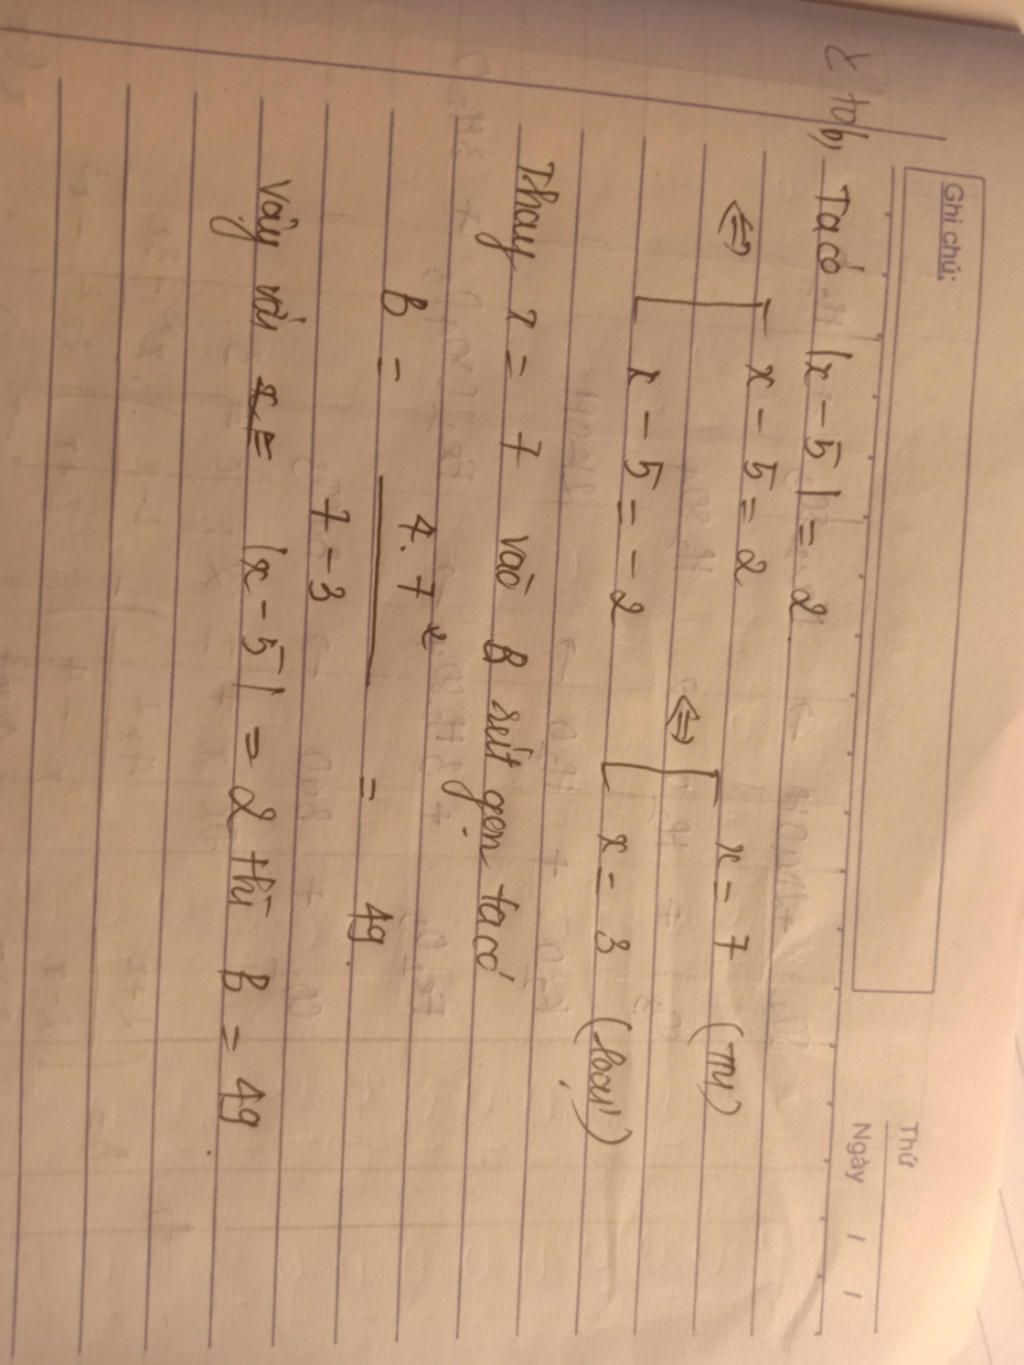 Ghi chú:
Thứ
Ngày / /
b, Ta có |x - 5| = 2
⇔ [ x - 5 = 2 ⇔ [ x = 7 (TM)
x - 5 = -2 x = 3 (loại)
Thay x = 7 vào B rút gọn ta có
B = 4.7² / 7 - 3 = 49.
Vậy với x = |x - 5| = 2 thì B = 49.